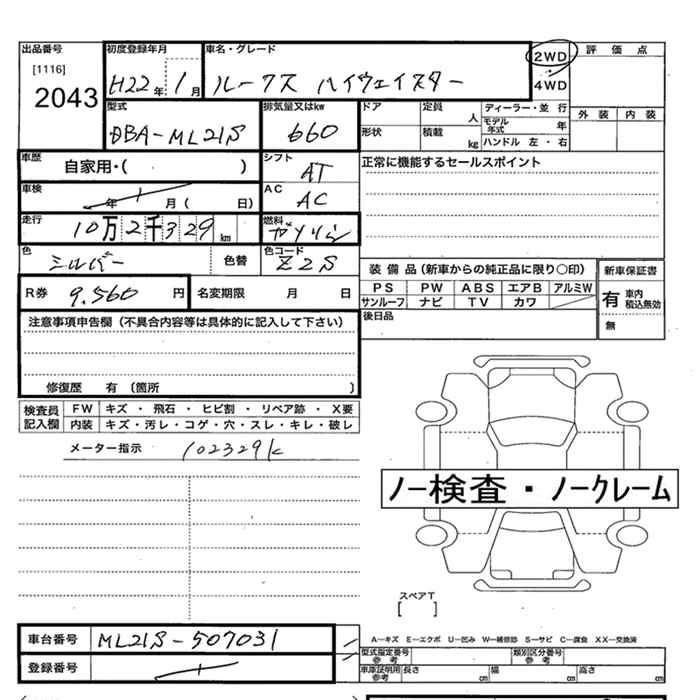 出品番号 初度登録年月 車名・グレード 2WD 評価点
[1116] H22年 1月 ルークス ハイウェイスター 4WD
2043 型式 排気量又はkw ドア 定員 人 ディーラー・並行 外装 内装
DBA-ML21S 660 形状 積載 kg モデル年式 年
ハンドル 左・右
車歴 自家用・( ) シフト AT 正常に機能するセールスポイント
車検 年 月( 日) AC AC
走行 10万2千329km 燃料 ガソリン
色 シルバー 色替 色コード Z2S
装備品(新車からの純正品に限り○印) 新車保証書
R券 9,560円 名変期限 月 日 PS PW ABS エアB アルミW 有 車内積込無効
サンルーフ ナビ TV カワ
注意事項申告欄(不具合内容等は具体的に記入して下さい) 後日品 無
修復歴 有(箇所 )
検査員記入欄 FW キズ・飛石・ヒビ割・リペア跡・X要
内装 キズ・汚レ・コゲ・穴・スレ・キレ・破レ
メーター指示 102329k
ノー検査・ノークレーム
スペアT
[ ]
車台番号 ML21S-507031
A―キズ E―エクボ U―凹み W―補修跡 S―サビ C―腐食 XX―交換済
型式指定番号 参考 類別区分番号 参考
登録番号 車庫証明用 参考 長さ cm 幅 cm 高さ cm